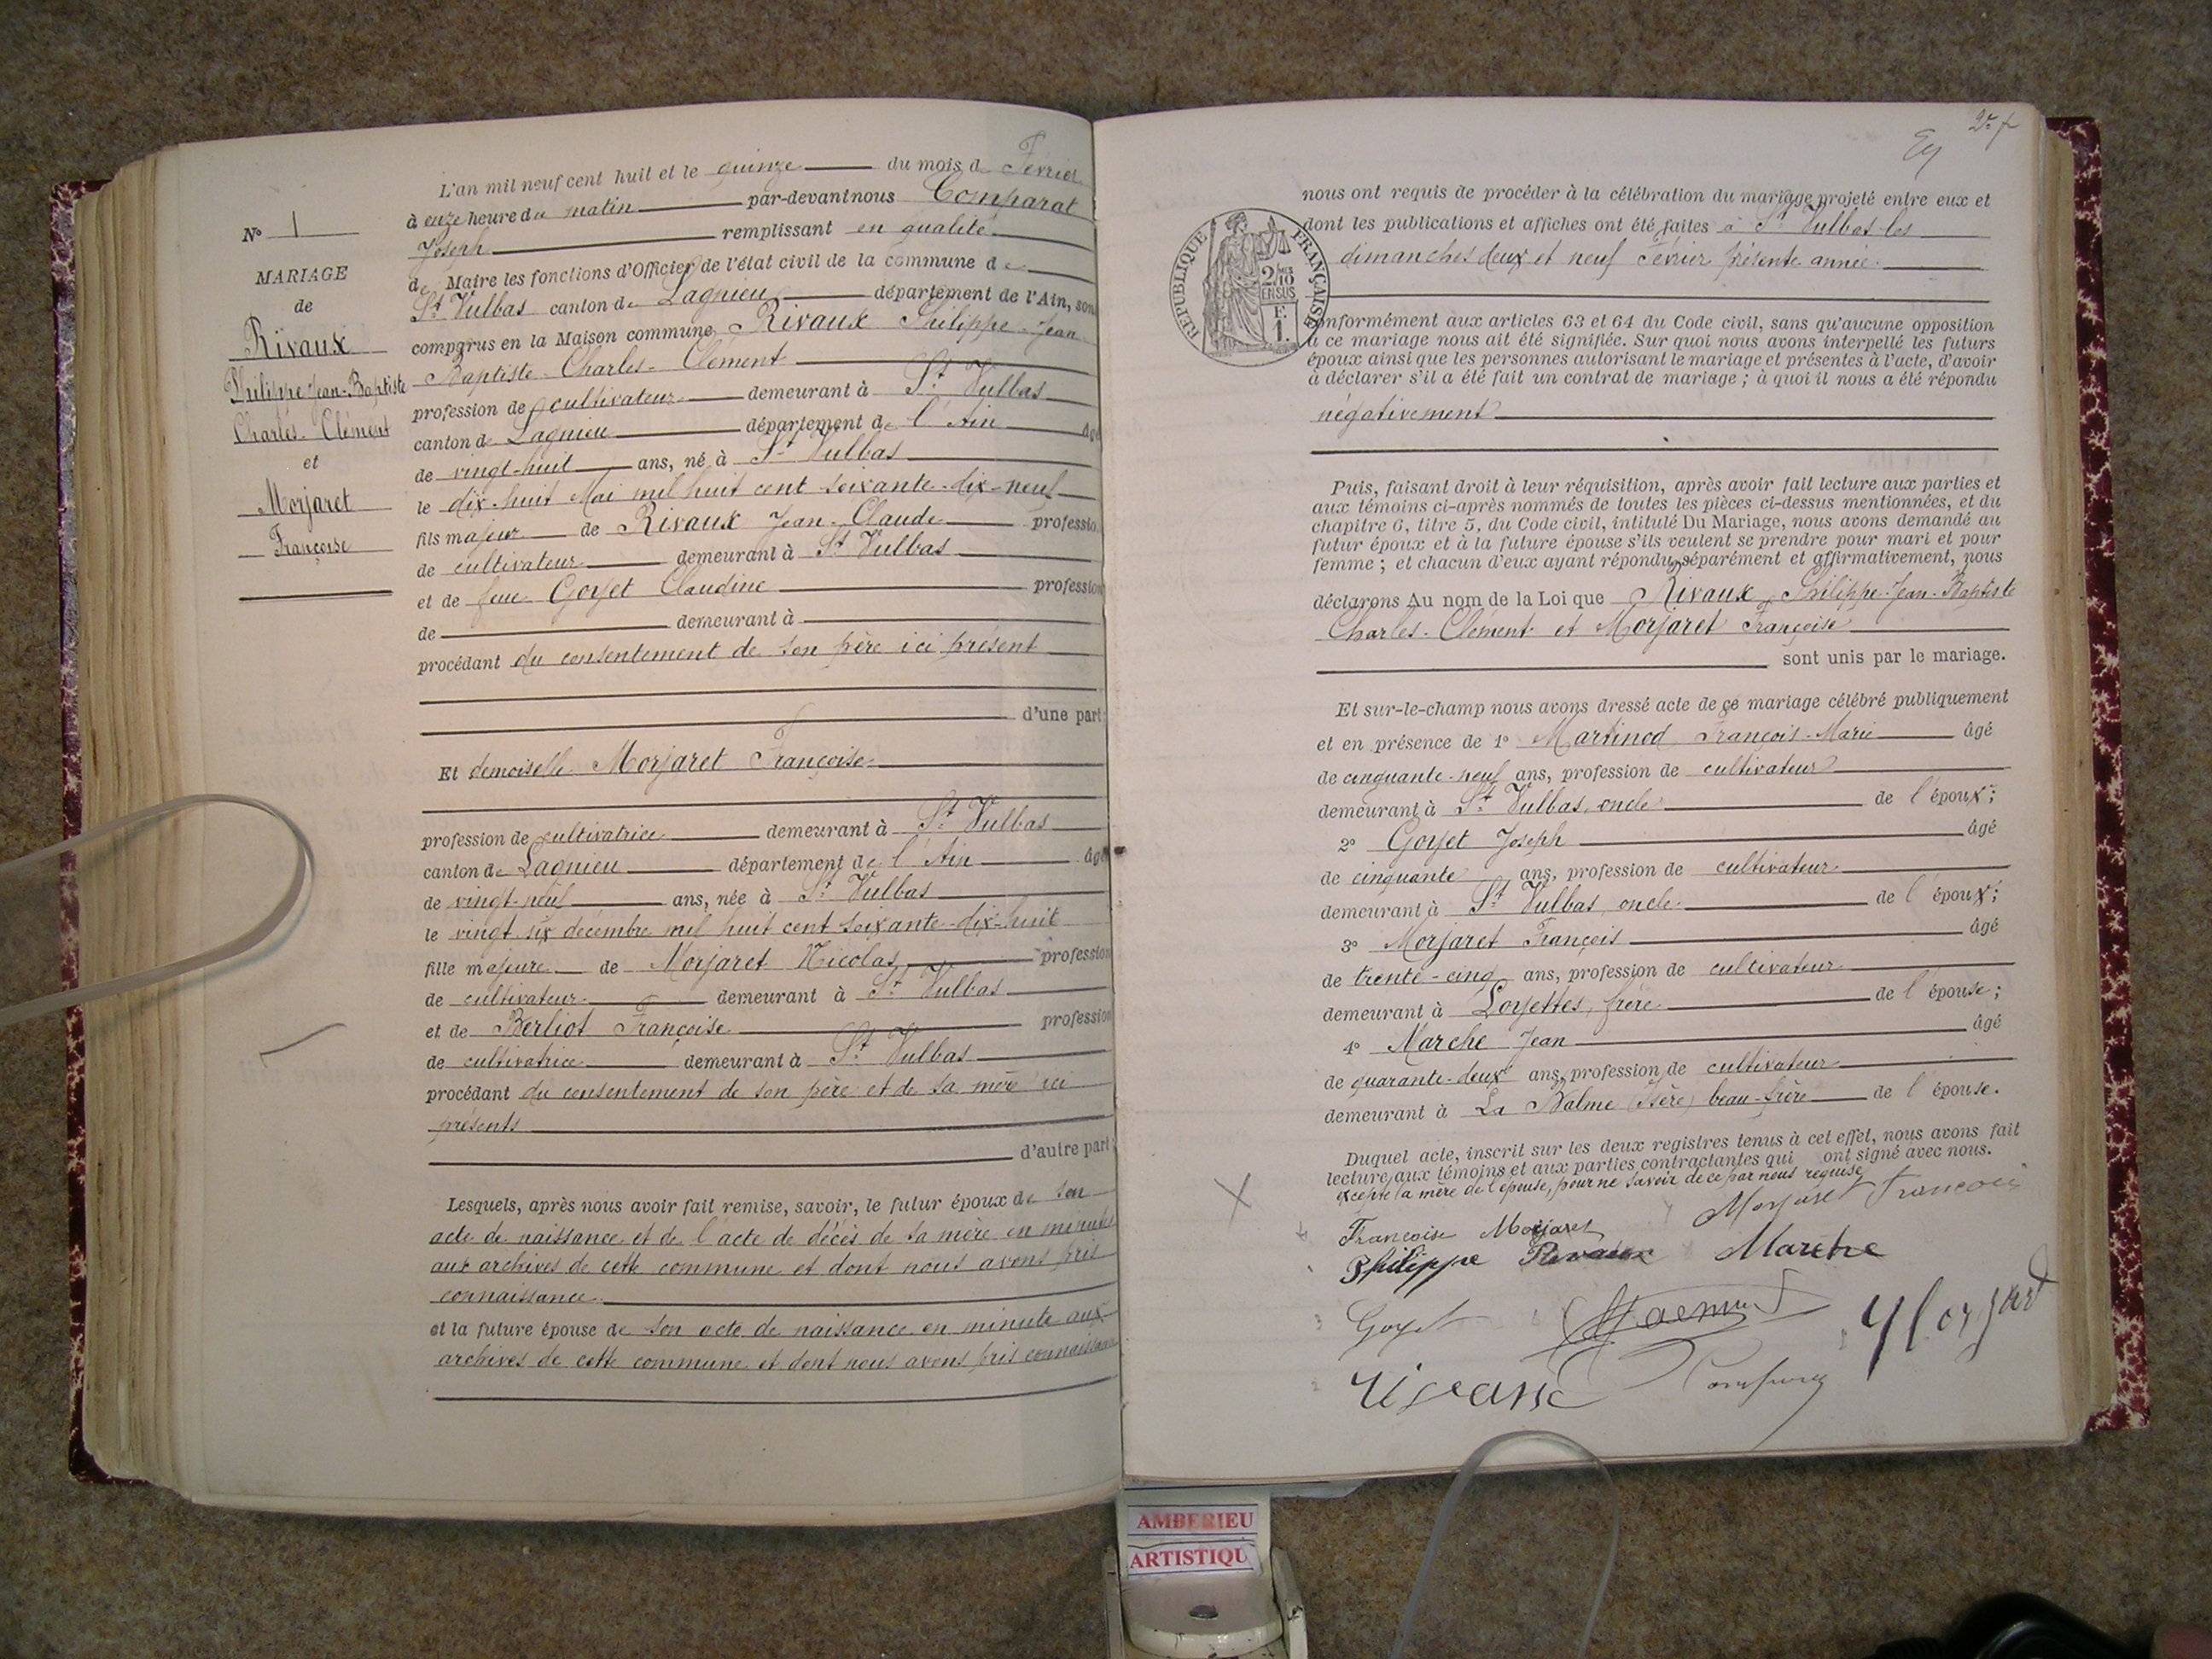 N° 1
MARIAGE
de
Rivaux
Philippe Jean-Baptiste
Charles-Clément
et
Morjaret
Françoise
L'an mil neuf cent huit et le quinze du mois de Février
à onze heure du matin par-devant nous Comparat
Joseph remplissant en qualité
de Maire les fonctions d'Officier de l'état civil de la commune de
St Vulbas canton de Lagnieu département de l'Ain, son
comparus en la Maison commune, Rivaux Philippe-Jean
Baptiste-Charles-Clément
profession de cultivateur demeurant à St Vulbas
canton de Lagnieu département de l'Ain âgé
de vingt-huit ans, né à St Vulbas
le dix-huit Mai mil huit cent soixante-dix-neuf
fils majeur de Rivaux Jean-Claude profession
de cultivateur demeurant à St Vulbas
et de feue Goyet Claudine profession
de demeurant à
procédant du consentement de son père ici présent
d'une part;
Et demoiselle Morjaret Françoise
profession de cultivatrice demeurant à St Vulbas
canton de Lagnieu département de l'Ain âgé
de vingt-neuf ans, née à St Vulbas
le vingt six décembre mil huit cent soixante-dix-huit
fille majeure de Morjaret Nicolas profession
de cultivateur demeurant à St Vulbas
et de Berliot Françoise profession
de cultivatrice demeurant à St Vulbas
procédant du consentement de son père et de sa mère ici
présents
d'autre part;
Lesquels, après nous avoir fait remise, savoir, le futur époux de son
acte de naissance et de l'acte de décès de sa mère en minutes
aux archives de cette commune et dont nous avons pris
connaissance
et la future épouse de son acte de naissance en minute aux
archives de cette commune et dont nous avons pris connaissance
2e f
RÉPUBLIQUE FRANÇAISE
2/10
EN SUS
F.
1.
nous ont requis de procéder à la célébration du mariage projeté entre eux et
dont les publications et affiches ont été faites à St Vulbas les
dimanches deux et neuf Février présente année
conformément aux articles 63 et 64 du Code civil, sans qu'aucune opposition
à ce mariage nous ait été signifiée. Sur quoi nous avons interpellé les futurs
époux ainsi que les personnes autorisant le mariage et présentes à l'acte, d'avoir
à déclarer s'il a été fait un contrat de mariage; à quoi il nous a été répondu
négativement
Puis, faisant droit à leur réquisition, après avoir fait lecture aux parties et
aux témoins ci-après nommés de toutes les pièces ci-dessus mentionnées, et du
chapitre 6, titre 5, du Code civil, intitulé Du Mariage, nous avons demandé au
futur époux et à la future épouse s'ils veulent se prendre pour mari et pour
femme; et chacun d'eux ayant répondu séparément et affirmativement, nous
déclarons Au nom de la Loi que Rivaux Philippe-Jean-Baptiste
Charles-Clément et Morjaret Françoise
sont unis par le mariage.
Et sur-le-champ nous avons dressé acte de ce mariage célébré publiquement
et en présence de 1° Martinod François-Marie âgé
de cinquante-neuf ans, profession de cultivateur
demeurant à St Vulbas, oncle de l'époux;
2° Goyet Joseph âgé
de cinquante ans, profession de cultivateur
demeurant à St Vulbas, oncle de l'époux;
3° Morjaret François âgé
de trente-cinq ans, profession de cultivateur
demeurant à Loyettes, frère de l'épouse;
4° Marche Jean âgé
de quarante-deux ans, profession de cultivateur
demeurant à La Balme (Isère) beau-frère de l'épouse.
Duquel acte, inscrit sur les deux registres tenus à cet effet, nous avons fait
lecture aux témoins et aux parties contractantes qui ont signé avec nous.
excepté la mère de l'épouse, pour ne savoir de ce par nous requise
Françoise Morjaret Morjaret François
Philippe Rivaux Marche
Goyet
AMBERIEU
ARTISTIQU